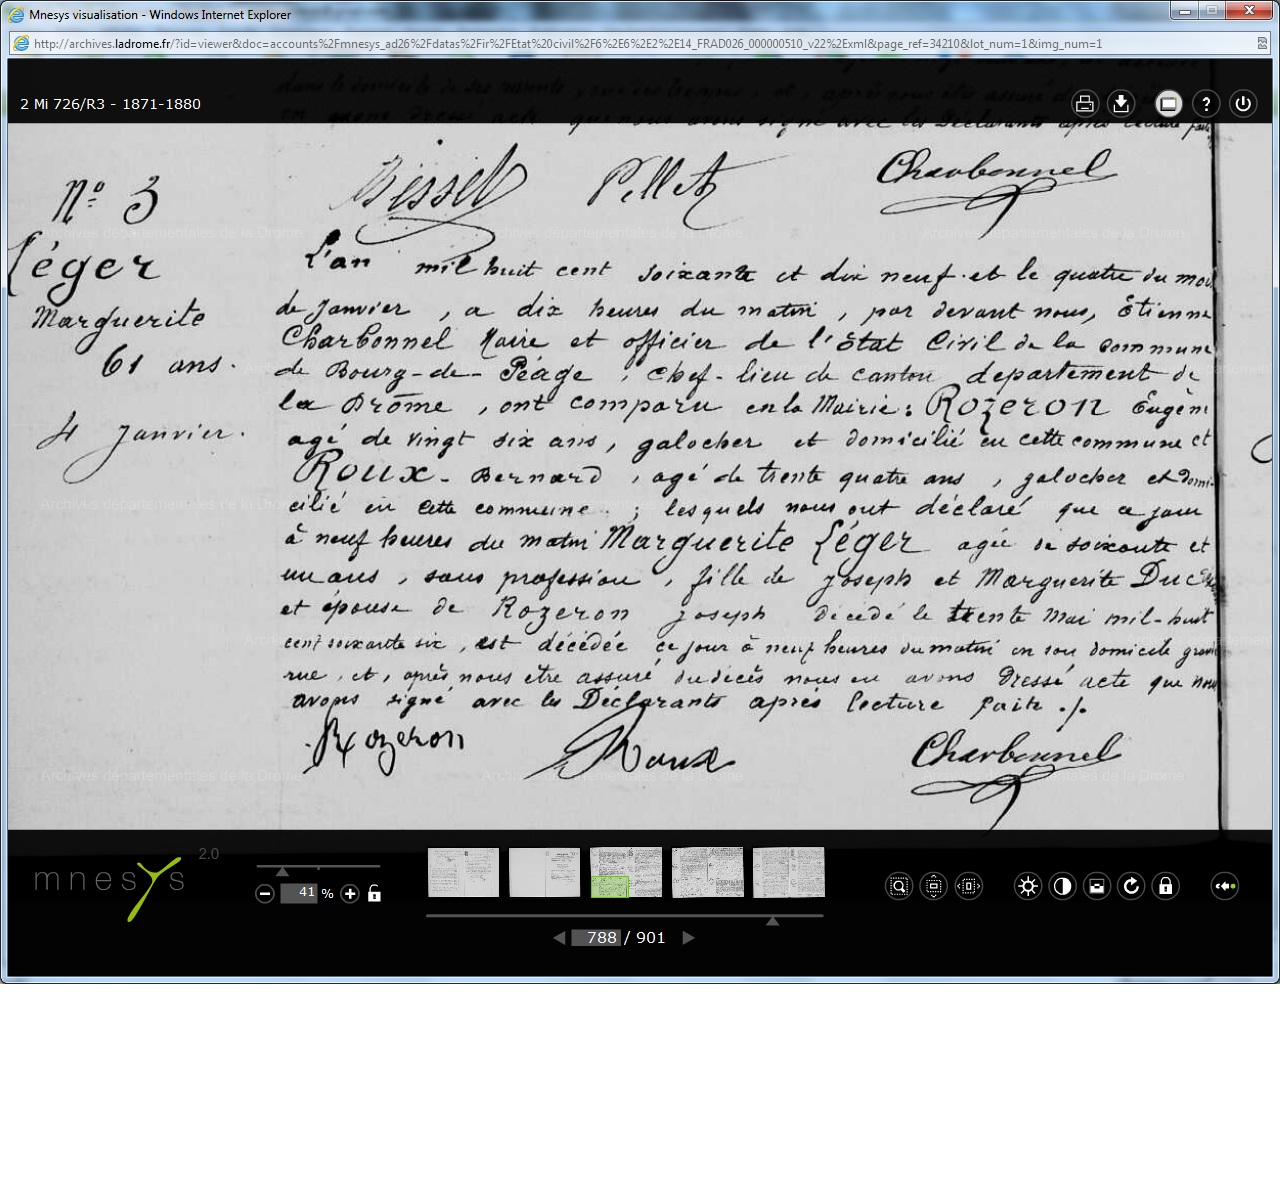 Mnesys visualisation - Windows Internet Explorer
http://archives.ladrome.fr/?id=viewer&doc=accounts%2Fmnesys_ad26%2Fdatas%2Fir%2FEtat%20civil%2F6%2E6%2E2%2E14_FRAD026_000000510_v22%2Exml&page_ref=34210&lot_num=1&img_num=1
2 Mi 726/R3 - 1871-1880
Bisset Pellet Charbonnel
N° 3
Léger
Marguerite
61 ans.
4 Janvier.
L'an mil huit cent soixante et dix neuf et le quatre du mois
de Janvier, a dix heures du matin, par devant nous, Etienne
Charbonnel Maire et officier de l'Etat Civil de la commune
de Bourg-de-Péage, chef-lieu de canton département de
la Drôme, ont comparu en la Mairie: Rozeron Eugène
agé de vingt six ans, galocher et domicilié en cette commune et
Roux Bernard, agé de trente quatre ans, galocher et domi-
cilié en cette commune; lesquels nous ont déclaré que ce jour
à neuf heures du matin Marguerite Léger agée de soixante et
un ans, sans profession, fille de Joseph et Marguerite
et épouse de Rozeron Joseph décédé le trente Mai mil-huit
cent soixante six, est décédée ce jour à neuf heures du matin en son domicile grande
rue, et, après nous être assuré du décès nous en avons dressé acte que nous
avons signé avec les Déclarants après lecture faite ./.
Rozeron Roux Charbonnel
Archives départementales de la Drome
mnesys 2.0
41 %
788 / 901